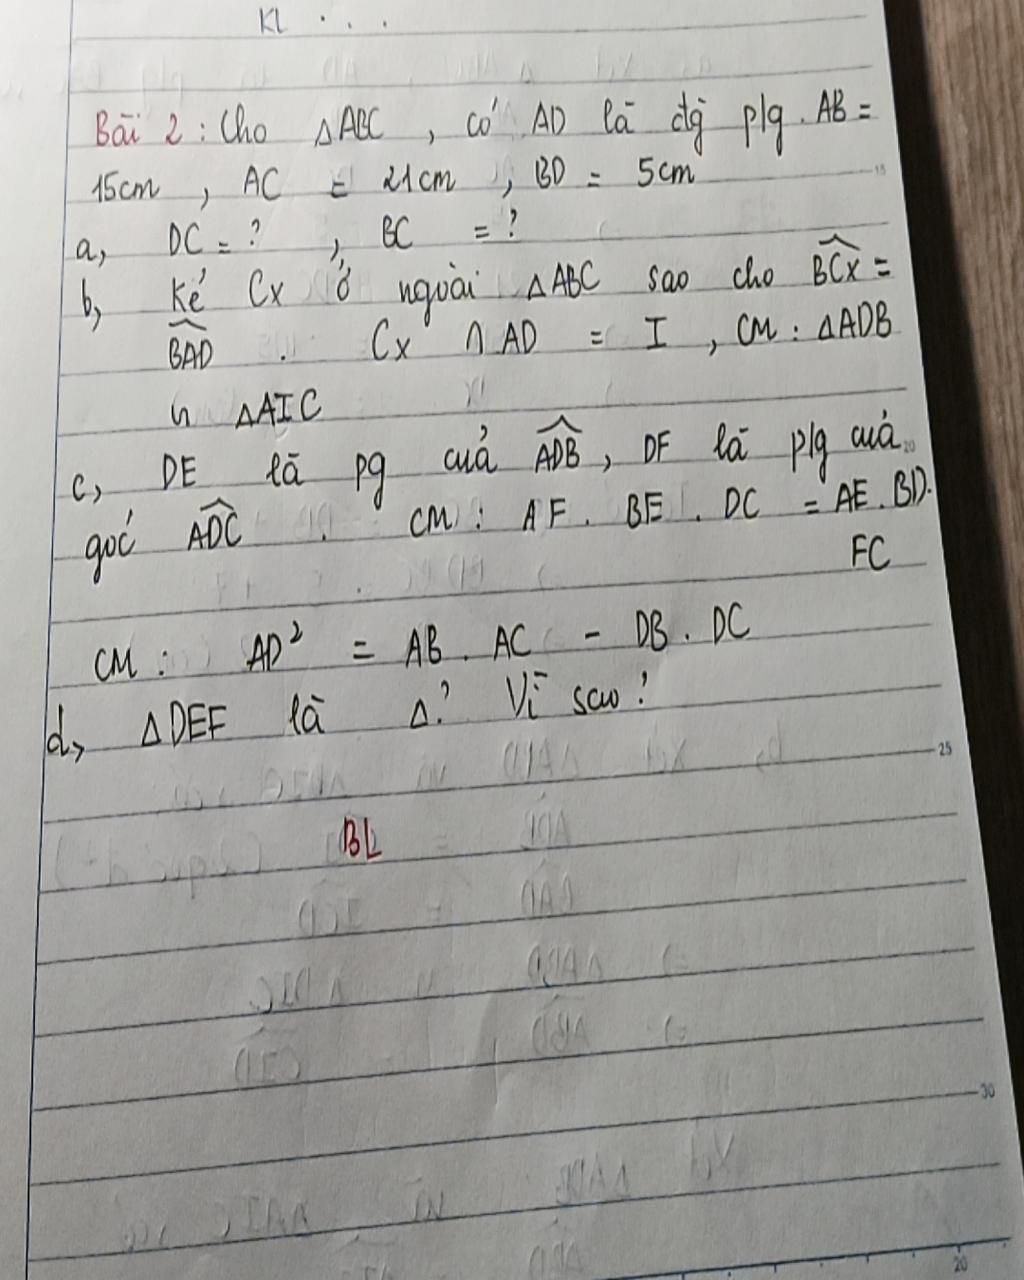 KL . . .
Bài 2 : Cho △ABC , có AD là đg p/g . AB =
15cm , AC = 21cm , BD = 5cm
a, DC = ? , BC = ?
b, Kẻ Cx ở ngoài △ABC sao cho BCx =
BAD . Cx ∩ AD = I , CM : △ADB
∽ △AIC
c, DE là pg của ADB , DF là p/g của
góc ADC . CM : AF . BE . DC = AE . BD .
FC
CM : AD² = AB . AC - DB . DC
d, △DEF là △? Vì sao ?
BL
15
20
25
30
20